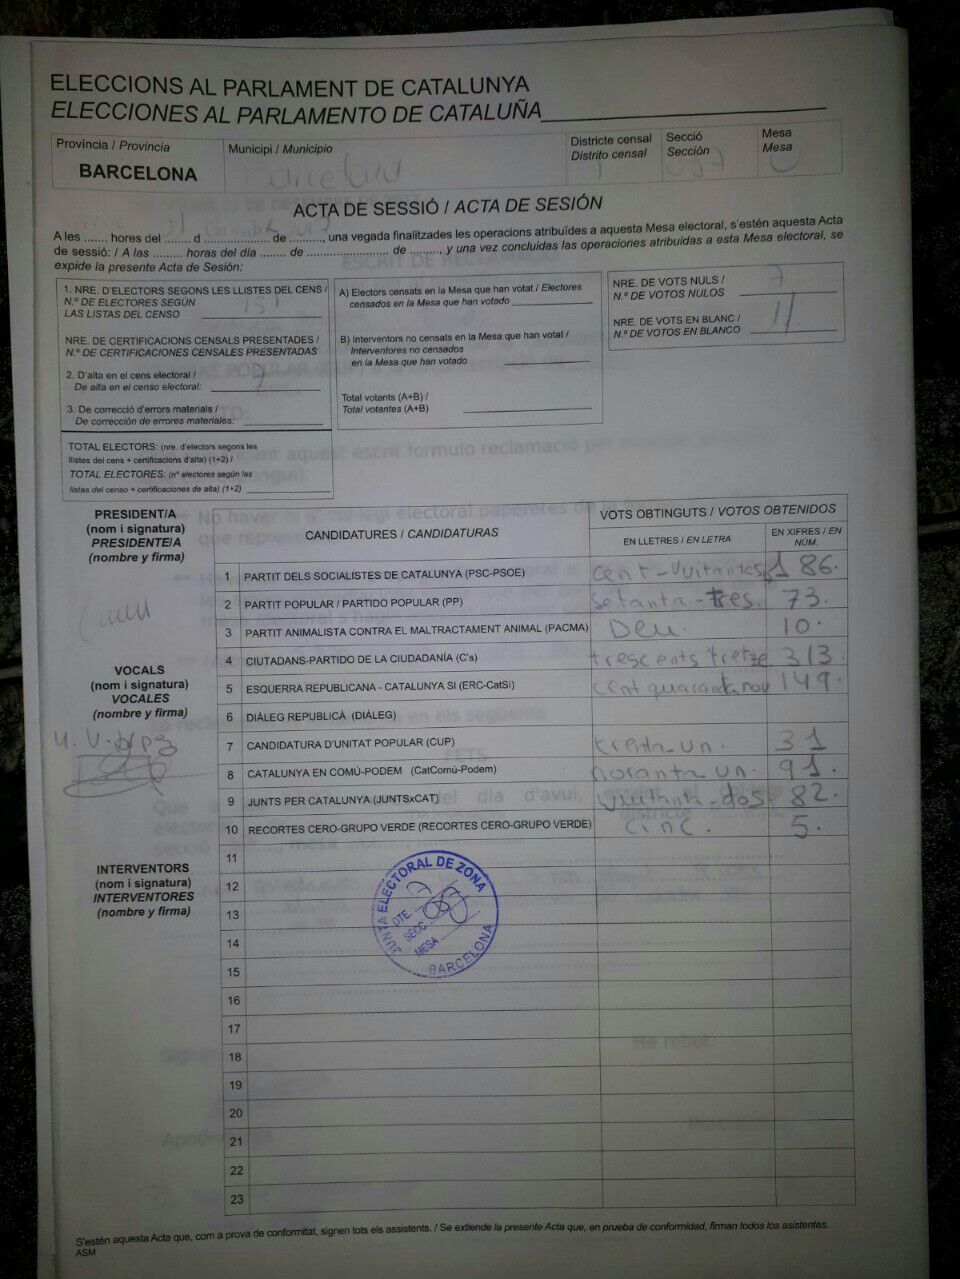 ELECCIONS AL PARLAMENT DE CATALUNYA
ELECCIONES AL PARLAMENTO DE CATALUÑA
Província / Provincia
BARCELONA
Municipi / Municipio
Barcelona
Districte censal
Distrito censal
Secció
Sección
Mesa
Mesa
ACTA DE SESSIÓ / ACTA DE SESIÓN
A les ....... hores del ....... d ..................... de ........., una vegada finalitzades les operacions atribuïdes a aquesta Mesa electoral, s'estén aquesta Acta
de sessió: / A las ......... horas del día ........ de ......................... de ........., y una vez concluidas las operaciones atribuidas a esta Mesa electoral, se
expide la presente Acta de Sesión:
1. NRE. D'ELECTORS SEGONS LES LLISTES DEL CENS /
N.º DE ELECTORES SEGÚN
LAS LISTAS DEL CENSO
NRE. DE CERTIFICACIONS CENSALS PRESENTADES /
N.º DE CERTIFICACIONES CENSALES PRESENTADAS
2. D'alta en el cens electoral /
De alta en el censo electoral:
3. De correcció d'errors materials /
De corrección de errores materiales:
TOTAL ELECTORS: (nre. d'electors segons les
llistes del cens + certificacions d'alta) (1+2) /
TOTAL ELECTORES: (nº electores según las
listas del censo + certificaciones de alta) (1+2)
A) Electors censats en la Mesa que han votat / Electores
censados en la Mesa que han votado
B) Interventors no censats en la Mesa que han votat /
Interventores no censados
en la Mesa que han votado
Total votants (A+B) /
Total votantes (A+B)
NRE. DE VOTS NULS /
N.º DE VOTOS NULOS 7
NRE. DE VOTS EN BLANC /
N.º DE VOTOS EN BLANCO 11
PRESIDENT/A
(nom i signatura)
PRESIDENTE/A
(nombre y firma)
VOCALS
(nom i signatura)
VOCALES
(nombre y firma)
INTERVENTORS
(nom i signatura)
INTERVENTORES
(nombre y firma)
CANDIDATURES / CANDIDATURAS
VOTS OBTINGUTS / VOTOS OBTENIDOS
EN LLETRES / EN LETRA
EN XIFRES / EN NÚM.
1 PARTIT DELS SOCIALISTES DE CATALUNYA (PSC-PSOE) 186.
2 PARTIT POPULAR / PARTIDO POPULAR (PP) setanta-tres. 73.
3 PARTIT ANIMALISTA CONTRA EL MALTRACTAMENT ANIMAL (PACMA) Deu. 10.
4 CIUTADANS-PARTIDO DE LA CIUDADANÍA (C's) trescents tretze. 313.
5 ESQUERRA REPUBLICANA - CATALUNYA SI (ERC-CatSí) cent quaranta nou 149.
6 DIÀLEG REPUBLICÀ (DIÀLEG)
7 CANDIDATURA D'UNITAT POPULAR (CUP) trenta-un. 31
8 CATALUNYA EN COMÚ-PODEM (CatComú-Podem) noranta-un. 91.
9 JUNTS PER CATALUNYA (JUNTSxCAT) vuitanta-dos. 82.
10 RECORTES CERO-GRUPO VERDE (RECORTES CERO-GRUPO VERDE) cinc. 5.
11
12
13
14
15
16
17
18
19
20
21
22
23
JUNTA ELECTORAL DE ZONA
DTE.
SECC.
MESA
BARCELONA
S'estén aquesta Acta que, com a prova de conformitat, signen tots els assistents. / Se extiende la presente Acta que, en prueba de conformidad, firman todos los asistentes.
ASM